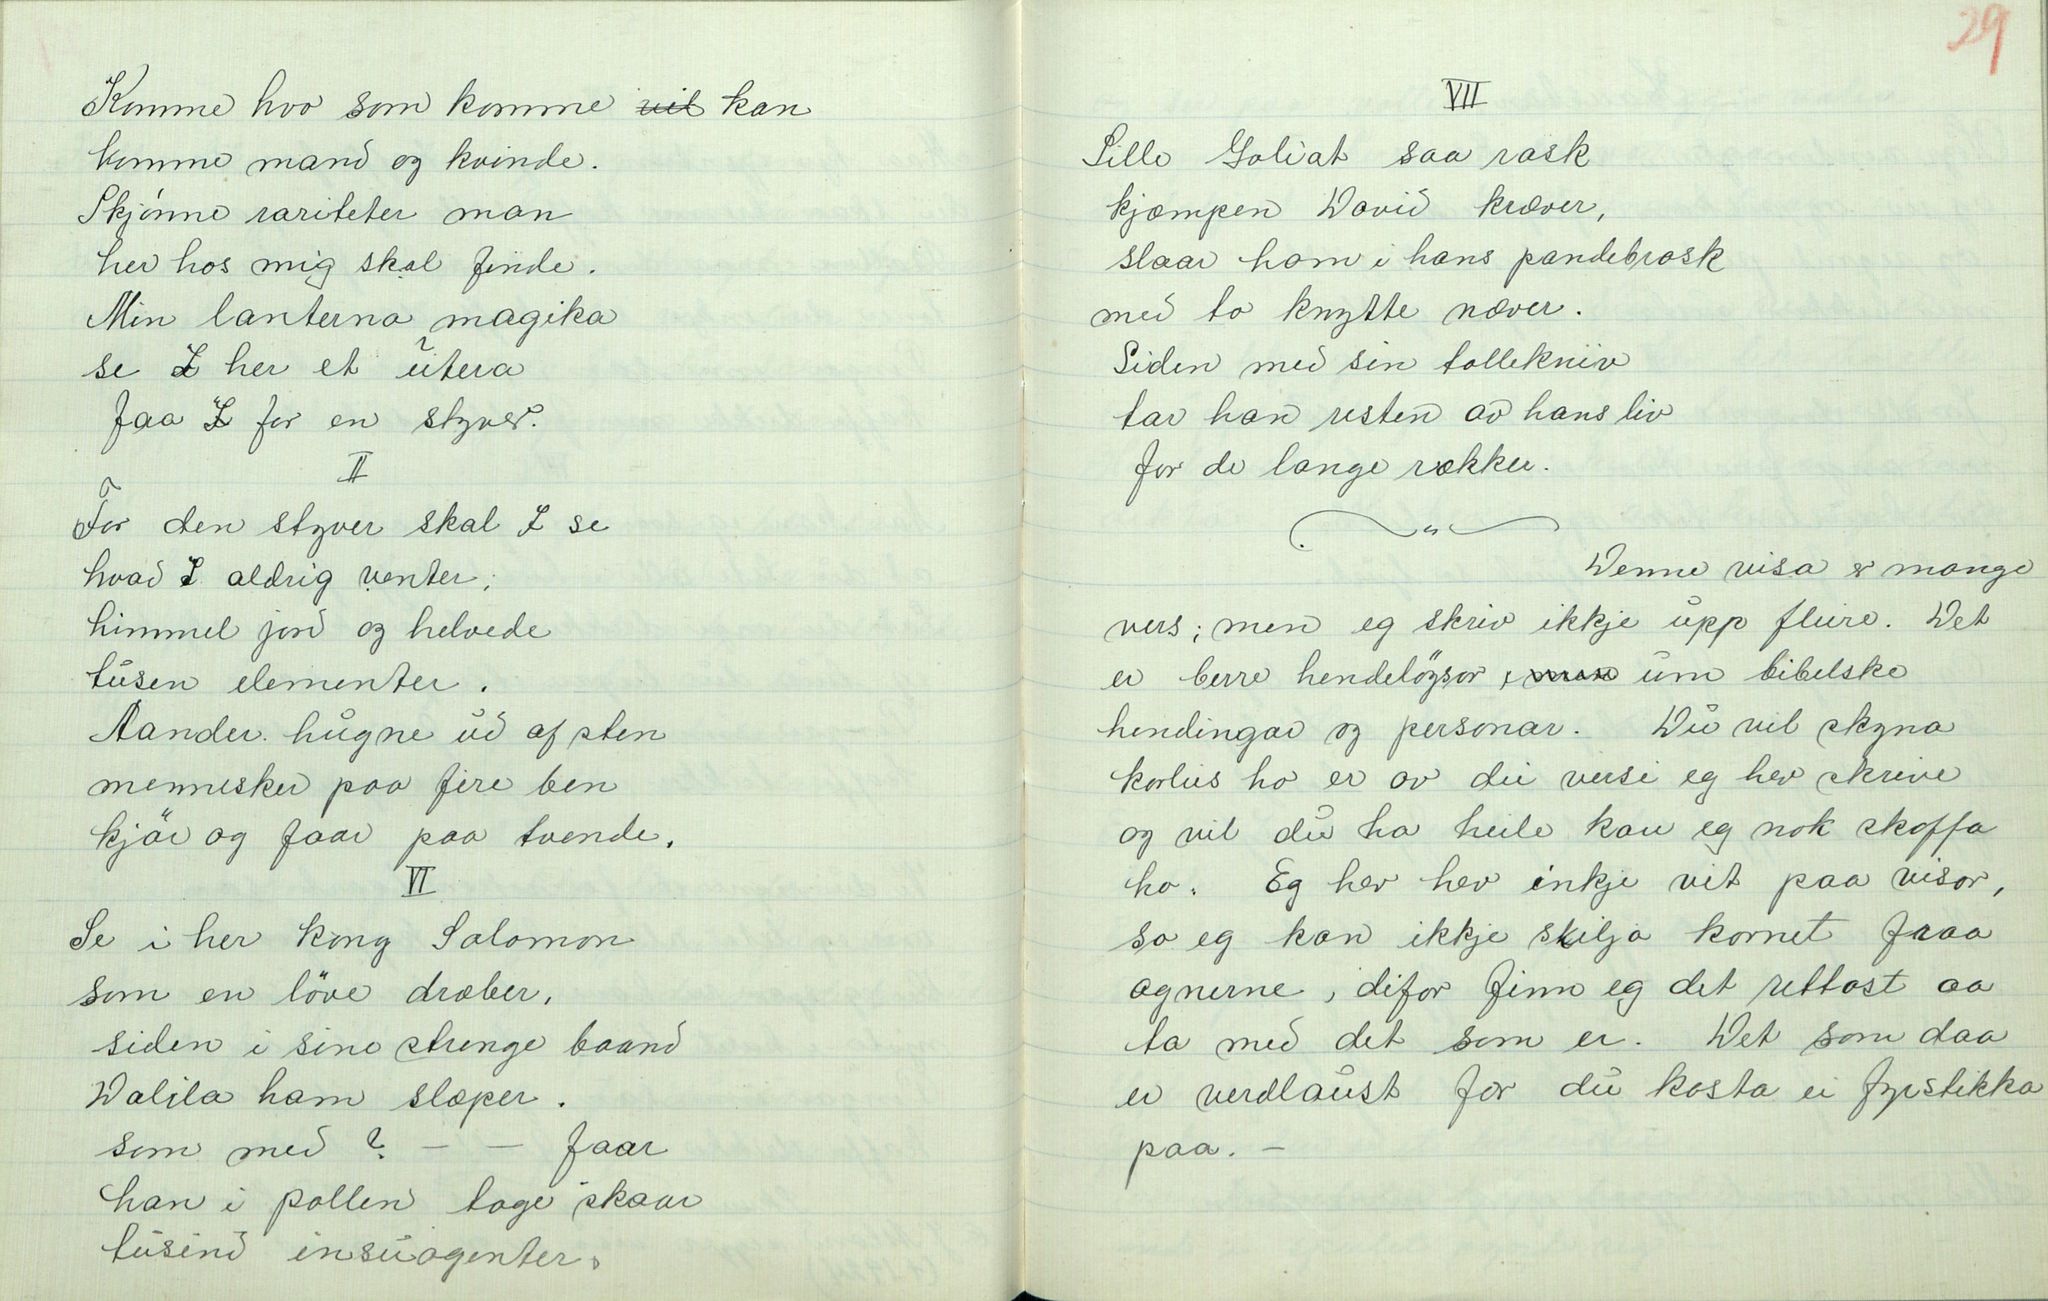 Komme hvo som komme vil kan
komme mand og kvinde.
Skjønne rariteter man
her hos mig skal finde.
Min lanterna magika
se I her et útera
faa I for en styver.
II
For den styver skal I se
hvad I aldrig venter,
himmel jord og helvede
tusen elementer.
Aander hugne ud af sten
mennesker paa fire ben
kjör og faar paa tvende.
VI
Se i her kong Salomon
som en löve dræber,
siden i sine strenge baand
Dalila ham slæper.
som med ? – – faar
han i pollen tage skaar
tusind insuagenter.
29
VII
Lille Goliat saa rask
kjæmpen David kræver,
slaar ham i hans pandebrask
med to knytte næver.
Siden med sin tollekniv
tar han resten av hans liv
for de lange rækker.
Denne visa er mange
vers; men eg skriv ikkje upp fleire. Det
er berre hendelögsor, men um bibelske
hendingar og personar. Du vil skyna
korleis ho er av dei versi eg hev skrive
og vil du ha heile kan eg nok skaffa
ho. Eg hev hev inkje vit paa visor,
so eg kan ikkje skilja kornet fraa
agnerne, difor finn eg det rettast aa
ta med det som er. Det som daa
er verdlaust for du kosta ei fyrstikka
paa. –